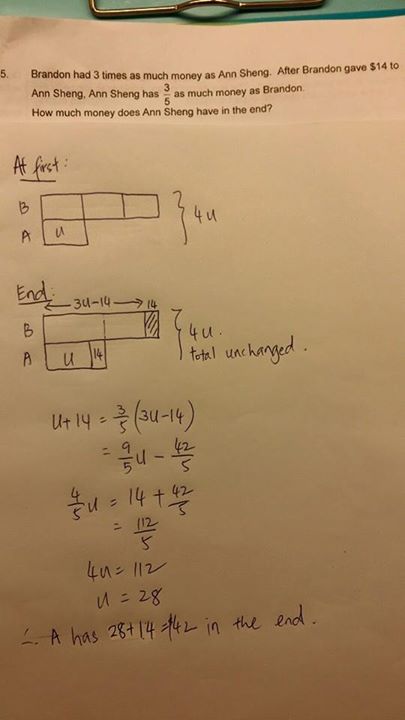 5. Brandon had 3 times as much money as Ann Sheng. After Brandon gave $14 to
Ann Sheng, Ann Sheng has 3/5 as much money as Brandon.
How much money does Ann Sheng have in the end?
At first:
B
A u
} 4u
End:
← 3u-14 → 14
B
A u 14
} 4u.
total unchanged.
u+14 = 3/5 (3u-14)
= 9/5 u - 42/5
4/5 u = 14 + 42/5
= 112/5
4u = 112
u = 28
∴ A has 28+14=$42 in the end.